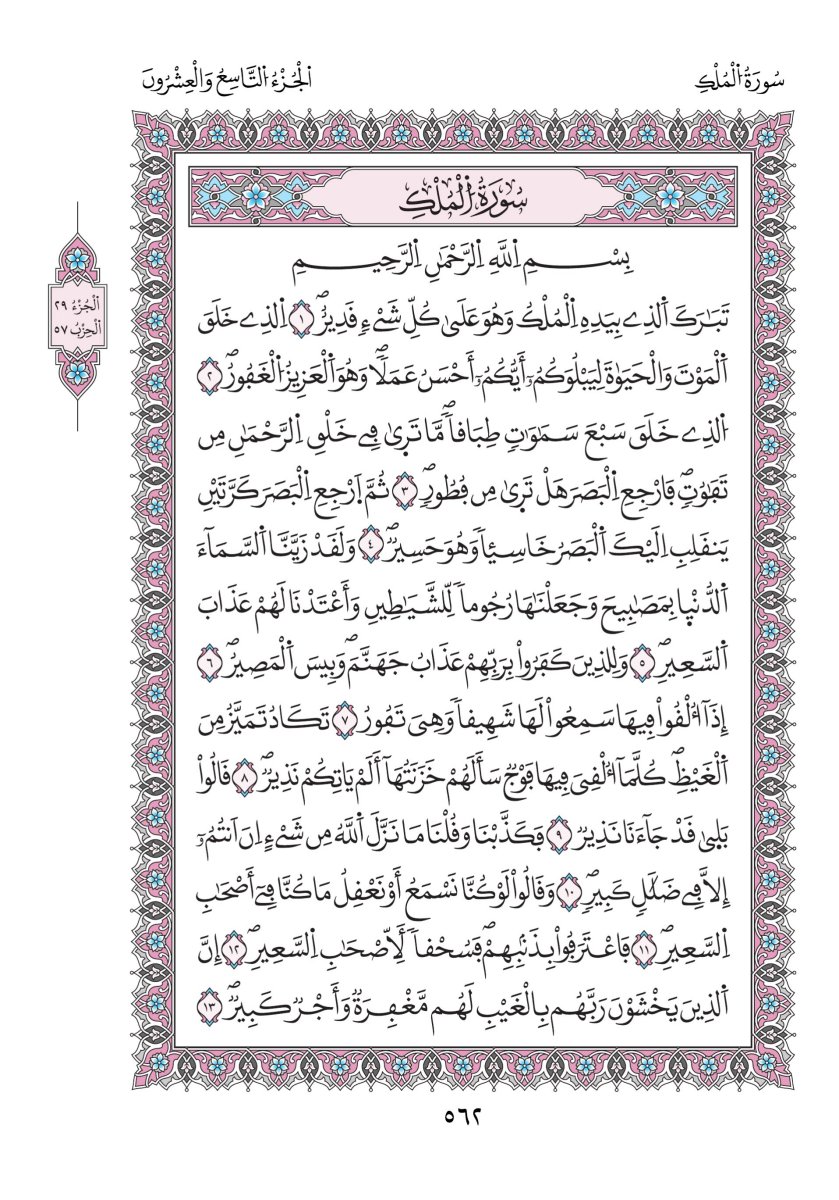 سُورَةُ اُ۬لْمُلْكِ
اَ۬لْجُزْءُ اُ۬لتَّاسِعُ وَالْعِشْرُونَ
سُورَةُ اُ۬لْمُلْكِ
بِسْمِ اِ۬للَّهِ اِ۬لرَّحْمَٰنِ اِ۬لرَّحِيمِ
تَبَٰرَكَ اَ۬لذِے بِيَدِهِ اِ۬لْمُلْكُ وَهُوَ عَلَىٰ كُلِّ شَےْءٖ قَدِيرٌۖ ١ اِ۬لذِے خَلَقَ
اَ۬لْمَوْتَ وَالْحَيَوٰةَ لِيَبْلُوَكُمُۥٓ أَيُّكُمُۥٓ أَحْسَنُ عَمَلاٗۖ وَهُوَ اَ۬لْعَزِيزُ اُ۬لْغَفُورُۖ ٢
اُ۬لذِے خَلَقَ سَبْعَ سَمَٰوَٰتٖ طِبَاقاٗۖ مَّا تَر۪ىٰ فِے خَلْقِ اِ۬لرَّحْمَٰنِ مِن
تَفَٰوُتٖۖ فَارْجِعِ اِ۬لْبَصَرَ هَلْ تَر۪ىٰ مِن فُطُورٖۖ ٣ ثُمَّ اَ۪رْجِعِ اِ۬لْبَصَرَ كَرَّتَيْنِ
يَنقَلِبِ اِلَيْكَ اَ۬لْبَصَرُ خَاسِئاٗ وَهُوَ حَسِيرٌۖ ٤ وَلَقَدْ زَيَّنَّا اَ۬لسَّمَآءَ
اَ۬لدُّنْي۪ا بِمَصَٰبِيحَ وَجَعَلْنَٰهَا رُجُوماٗ لِّلشَّيَٰطِينِ وَأَعْتَدْنَا لَهُمْ عَذَابَ
اَ۬لسَّعِيرِۖ ٥ وَلِلذِينَ كَفَرُواْ بِرَبِّهِمْ عَذَابُ جَهَنَّمَۖ وَبِيسَ اَ۬لْمَصِيرُۖ ٦
إِذَآ أُلْقُواْ فِيهَا سَمِعُواْ لَهَا شَهِيقاٗ وَهِيَ تَفُورُ ٧ تَكَادُ تَمَيَّزُ مِنَ
اَ۬لْغَيْظِۖ كُلَّمَآ أُلْقِيَ فِيهَا فَوْجٞ سَأَلَهُمْ خَزَنَتُهَآ أَلَمْ يَاتِكُمْ نَذِيرٌۖ ٨ قَالُواْ
بَل۪ىٰ قَدْ جَآءَنَا نَذِيرٞ ٩ فَكَذَّبْنَا وَقُلْنَا مَا نَزَّلَ اَ۬للَّهُ مِن شَےْءٍ اِنَ اَنتُمُۥٓ
إِلاَّ فِے ضَلَٰلٖ كَبِيرٖۖ ١٠ وَقَالُواْ لَوْ كُنَّا نَسْمَعُ أَوْ نَعْقِلُ مَا كُنَّا فِےٓ أَصْحَٰبِ
اِ۬لسَّعِيرِۖ ١١ فَاعْتَرَفُواْ بِذَنۢبِهِمْۖ فَسُحْقاٗ لِّأَصْحَٰبِ اِ۬لسَّعِيرِۖ ١٢ إِنَّ
اَ۬لذِينَ يَخْشَوْنَ رَبَّهُم بِالْغَيْبِ لَهُم مَّغْفِرَةٞ وَأَجْرٞ كَبِيرٞۖ ١٣
اَ۬لْجُزْءُ ٢٩
اَ۬لْحِزْبُ ٥٧
٥٦٢